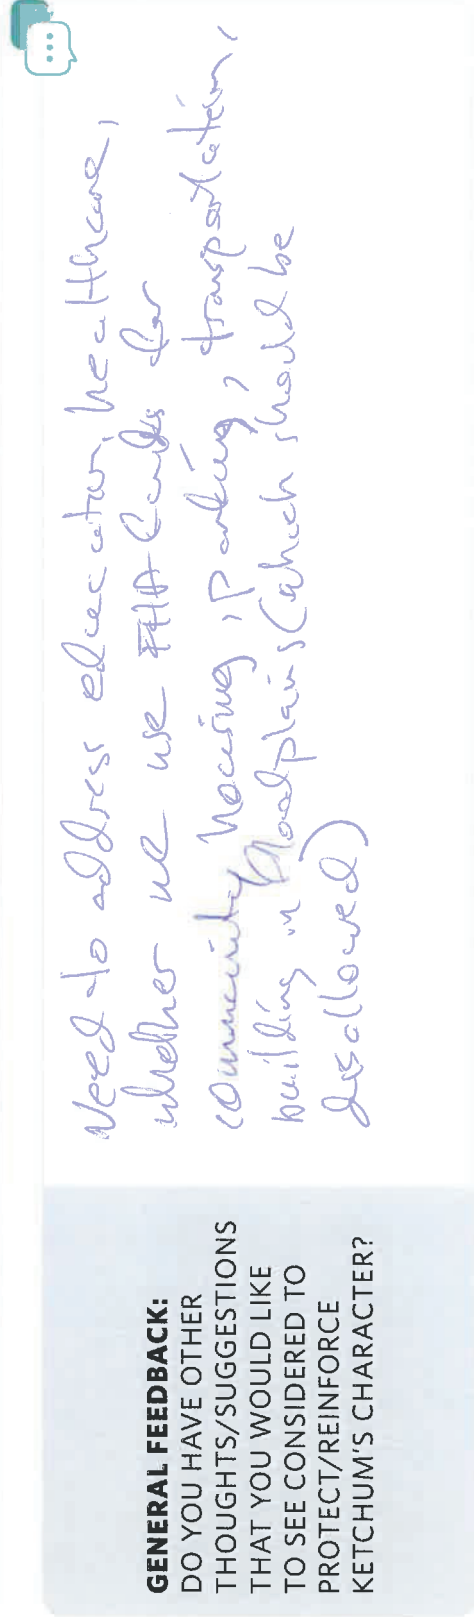 GENERAL FEEDBACK:
DO YOU HAVE OTHER
THOUGHTS/SUGGESTIONS
THAT YOU WOULD LIKE
TO SEE CONSIDERED TO
PROTECT/REINFORCE
KETCHUM'S CHARACTER?
Need to address education, healthcare,
whether we use funds for
community housing, parking, transportation,
building in floodplains (which should be
disallowed)